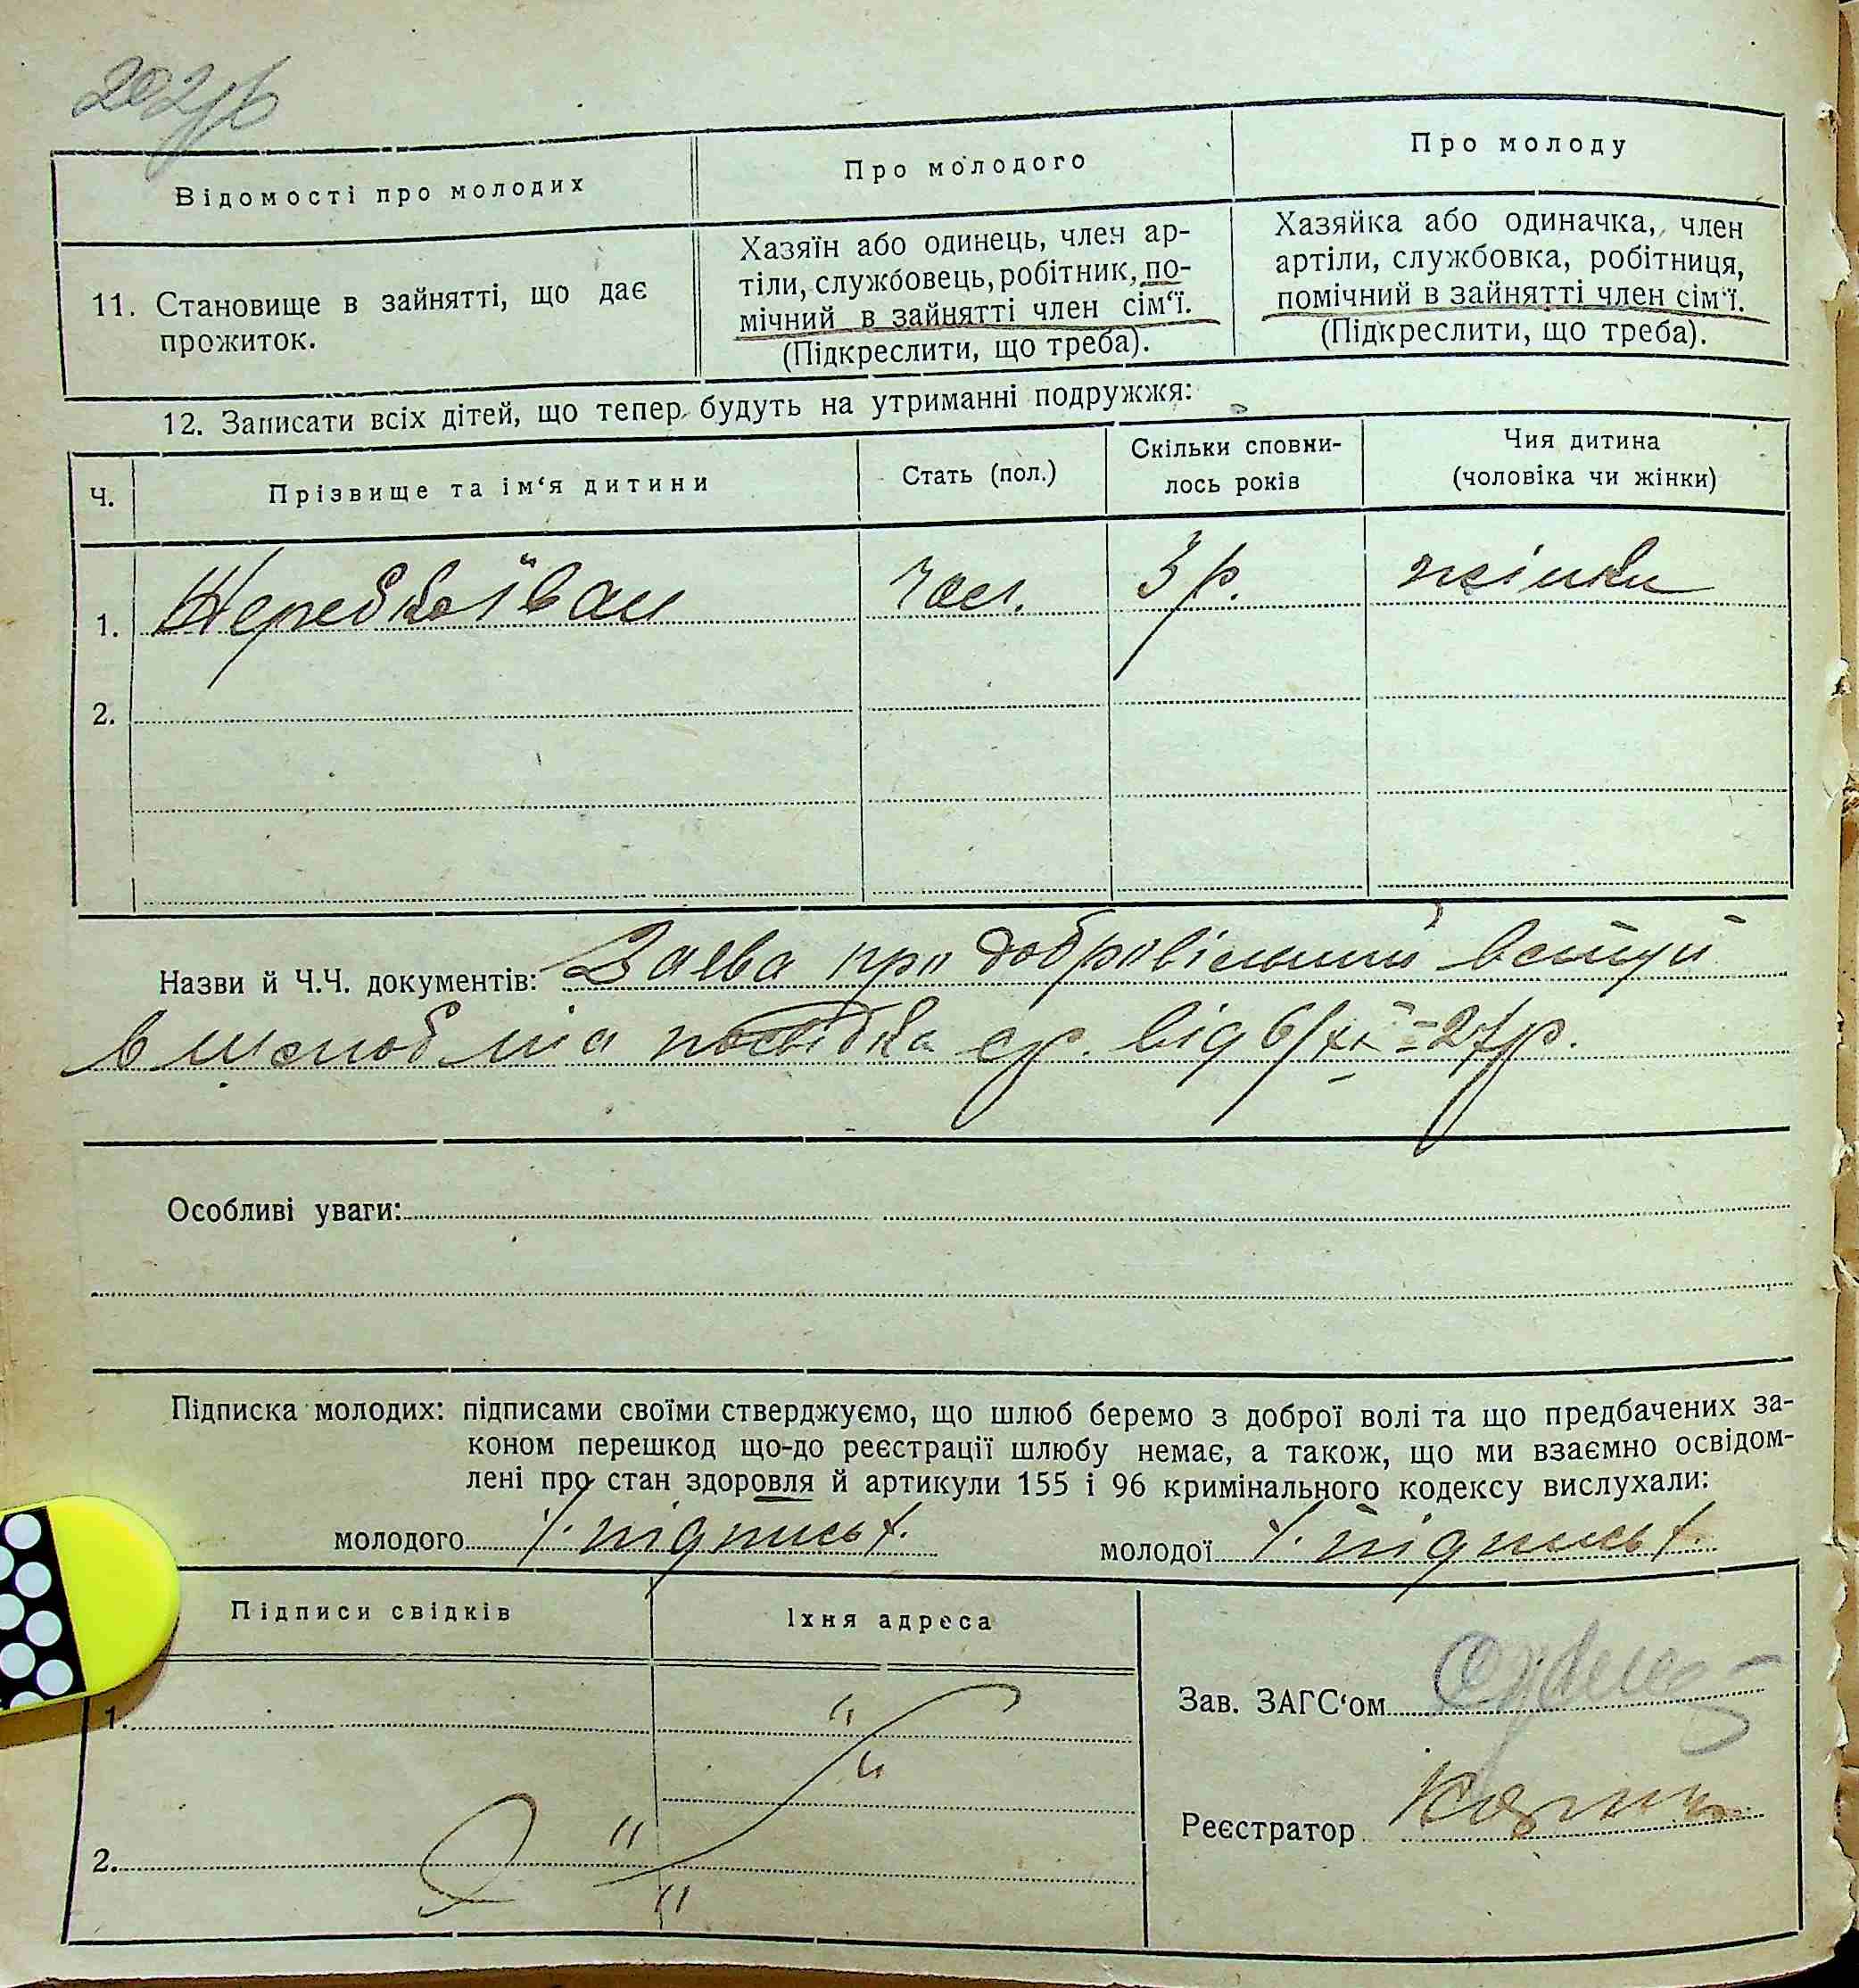 202
Відомості про молодих
Про молодого
Про молоду
11. Становище в зайнятті, що дає
прожиток.
Хазяїн або одинець, член ар-
тіли, службовець, робітник, по-
мічний в зайнятті член сім‘ї.
(Підкреслити, що треба).
Хазяйка або одиначка, член
артіли, службовка, робітниця,
помічний в зайнятті член сім‘ї.
(Підкреслити, що треба).
12. Записати всіх дітей, що тепер будуть на утриманні подружжя:
Ч.
Прізвище та ім‘я дитини
Стать (пол.)
Скільки сповни-
лось років
Чия дитина
(чоловіка чи жінки)
1. Іван чол. 3 р. жінки
2.
Назви й Ч.Ч. документів: Заява про добровільний вступ
в шлюб та посвідка с/р. від 6/ХІ-27р.
Особливі уваги:
Підписка молодих: підписами своїми стверджуємо, що шлюб беремо з доброї волі та що предбачених за-
коном перешкод що-до реєстрації шлюбу немає, а також, що ми взаємно освідом-
лені про стан здоровля й артикули 155 і 96 кримінального кодексу вислухали:
молодого /підпись/. молодої /підпись/.
Підписи свідків
Їхня адреса
1.
2.
Зав. ЗАГС‘ом
Реєстратор